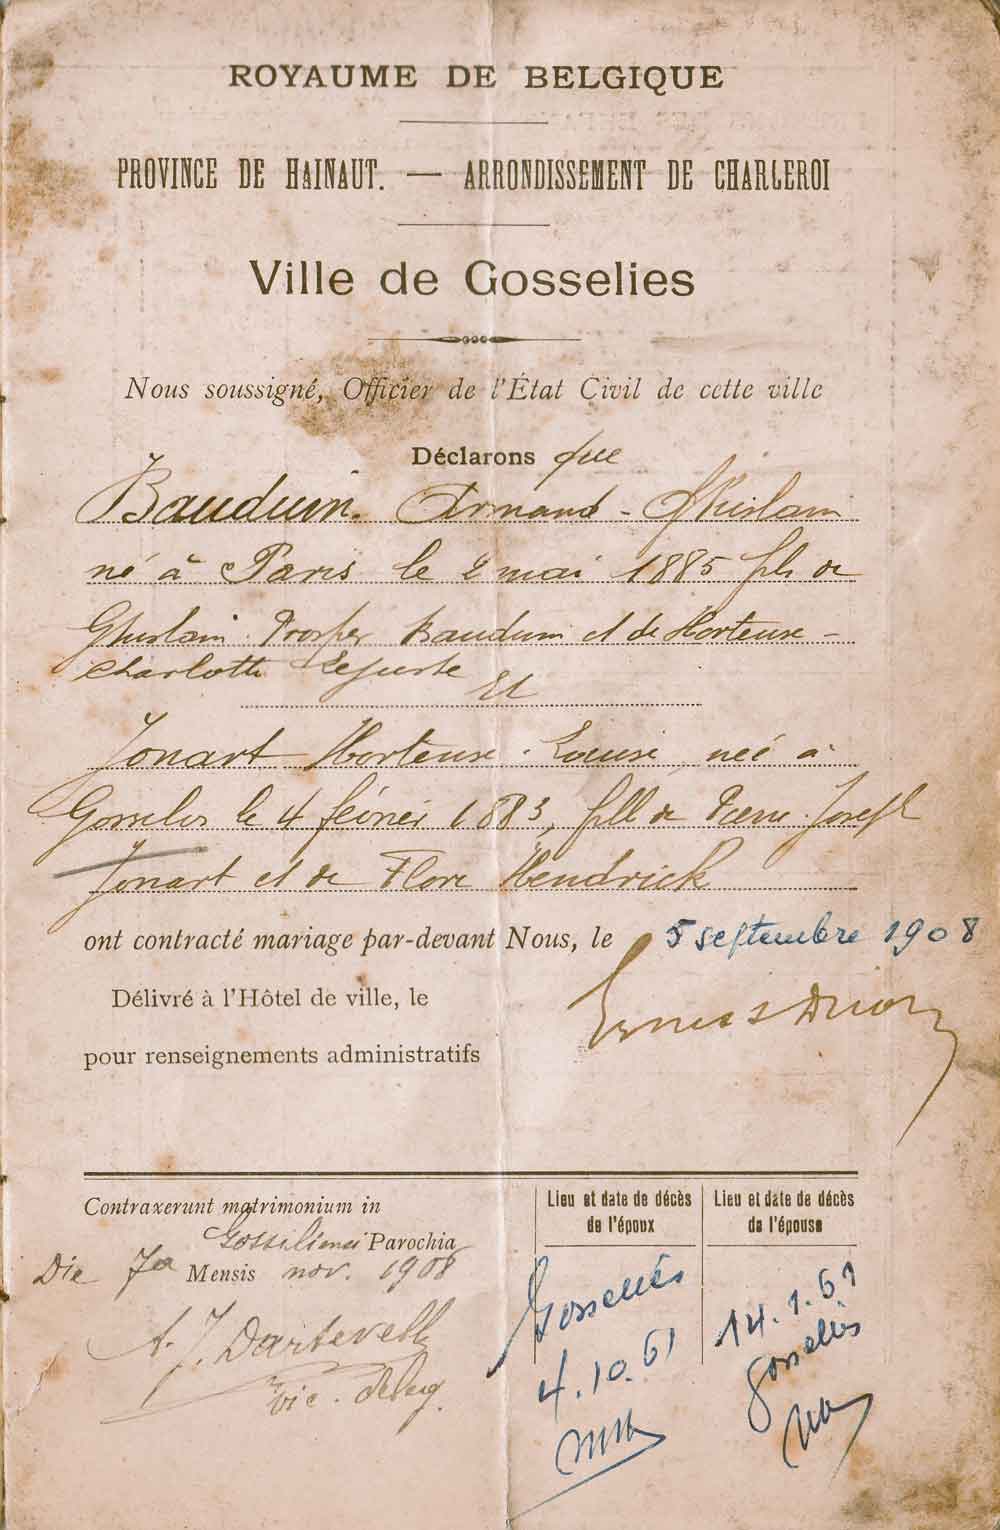 ROYAUME DE BELGIQUE
PROVINCE DE HAINAUT. — ARRONDISSEMENT DE CHARLEROI
Ville de Gosselies
Nous soussigné, Officier de l'État Civil de cette ville
Déclarons que
Bauduin. Armand - Ghislain
né à Paris le 2 mai 1885 fils de
Ghislain Prosper Bauduin et de Hortense -
Charlotte Lejuste
Et
Jonart Hortense - Louise, née à
Gosselies le 4 février 1883, fille de Pierre Joseph
Jonart et de Flore Hendrick
ont contracté mariage par-devant Nous, le 5 septembre 1908
Délivré à l'Hôtel de ville, le
Ernest Drion
pour renseignements administratifs
Contraxerunt matrimonium in
Parochia
Die 7a Mensis nov. 1908
A. J. Dartevelle
vic. deleg.
Lieu et date de décès
de l'époux
Gosselies
4.10.61
Lieu et date de décès
de l'épouse
14.1.61
Gosselies